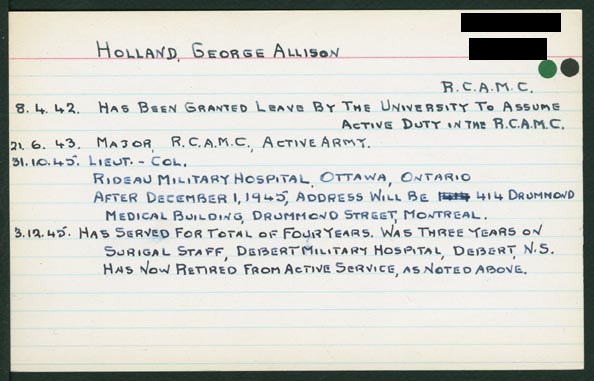 HOLLAND, GEORGE ALLISON
R.C.A.M.C.
8.4.42. HAS BEEN GRANTED LEAVE BY THE UNIVERSITY TO ASSUME
ACTIVE DUTY IN THE R.C.A.M.C.
21.6.43. MAJOR, R.C.A.M.C., ACTIVE ARMY.
31.10.45. LIEUT.-COL.
RIDEAU MILITARY HOSPITAL, OTTAWA, ONTARIO
AFTER DECEMBER 1, 1945, ADDRESS WILL BE 414 DRUMMOND
MEDICAL BUILDING, DRUMMOND STREET, MONTREAL.
3.12.45. HAS SERVED FOR TOTAL OF FOUR YEARS. WAS THREE YEARS ON
SURIGAL STAFF, DEBERT MILITARY HOSPITAL, DEBERT, N.S.
HAS NOW RETIRED FROM ACTIVE SERVICE, AS NOTED ABOVE.